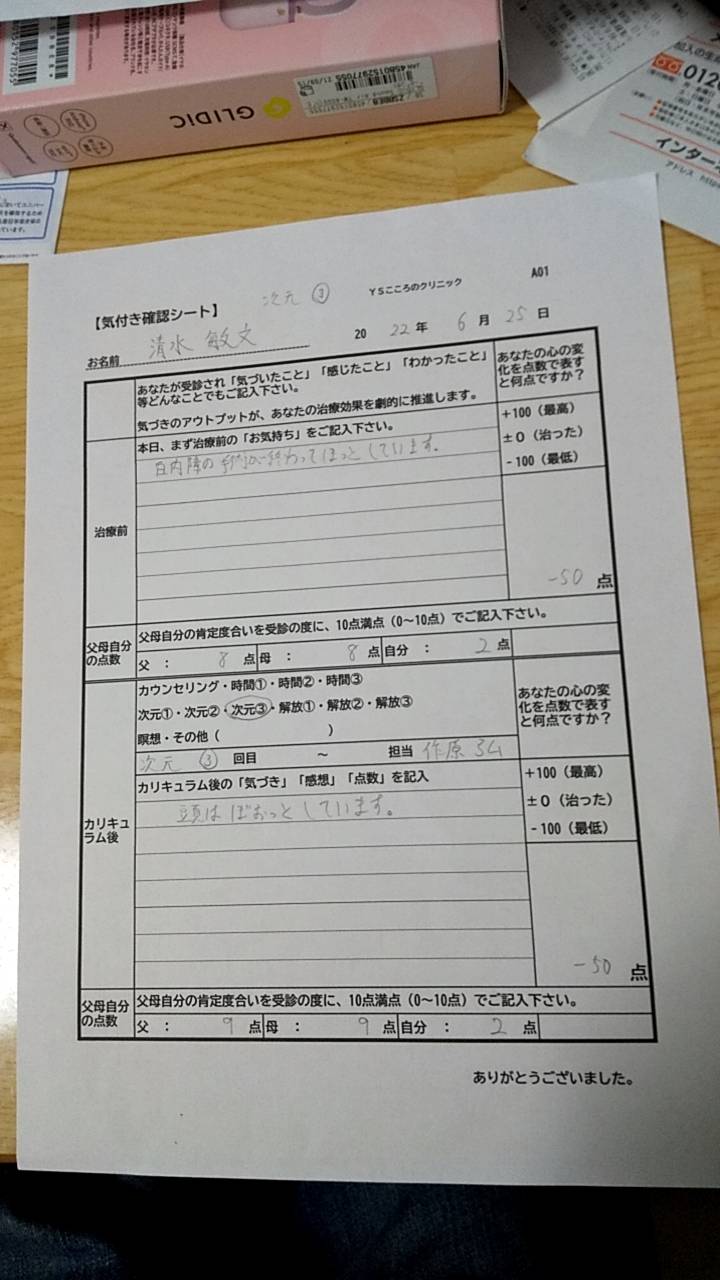 GLIDiC
JAN 4580152977055
0120
インターネ
アドレス
次元 ③
YSこころのクリニック
A01
【気付き確認シート】
お名前 清水 敏文
20 22 年 6 月 25 日
あなたが受診され「気づいたこと」「感じたこと」「わかったこと」
等どんなことでもご記入下さい。
気づきのアウトプットが、あなたの治療効果を劇的に推進します。
あなたの心の変
化を点数で表す
と何点ですか?
治療前
本日、まず治療前の「お気持ち」をご記入下さい。
白内障の手術が終わってほっとしています。
+100(最高)
±0(治った)
-100(最低)
-50 点
父母自分
の点数
父母自分の肯定度合いを受診の度に、10点満点(0~10点)でご記入下さい。
父 : 8 点 母 : 8 点 自分 : 2 点
カリキュ
ラム後
カウンセリング・時間①・時間②・時間③
次元①・次元②・次元③・解放①・解放②・解放③
瞑想・その他( )
あなたの心の変
化を点数で表す
と何点ですか?
次元 ③ 回目 ~ 担当 作原 弘
カリキュラム後の「気づき」「感想」「点数」を記入
頭はぼおっとしています。
+100(最高)
±0(治った)
-100(最低)
-50 点
父母自分
の点数
父母自分の肯定度合いを受診の度に、10点満点(0~10点)でご記入下さい。
父 : 9 点 母 : 9 点 自分 : 2 点
ありがとうございました。